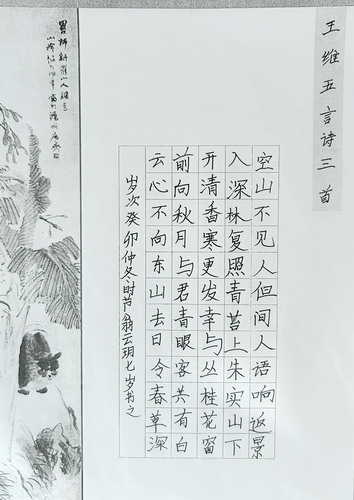 王维五言詩三首
空山不见人但间人语响返景
入深林复照青苔上朱实山下
开清香寒更发幸与丛桂花窗
前向秋月与君青眼客共有白
云心不向东山去日令春草深
岁次癸卯仲冬时节翁云玥七岁书之